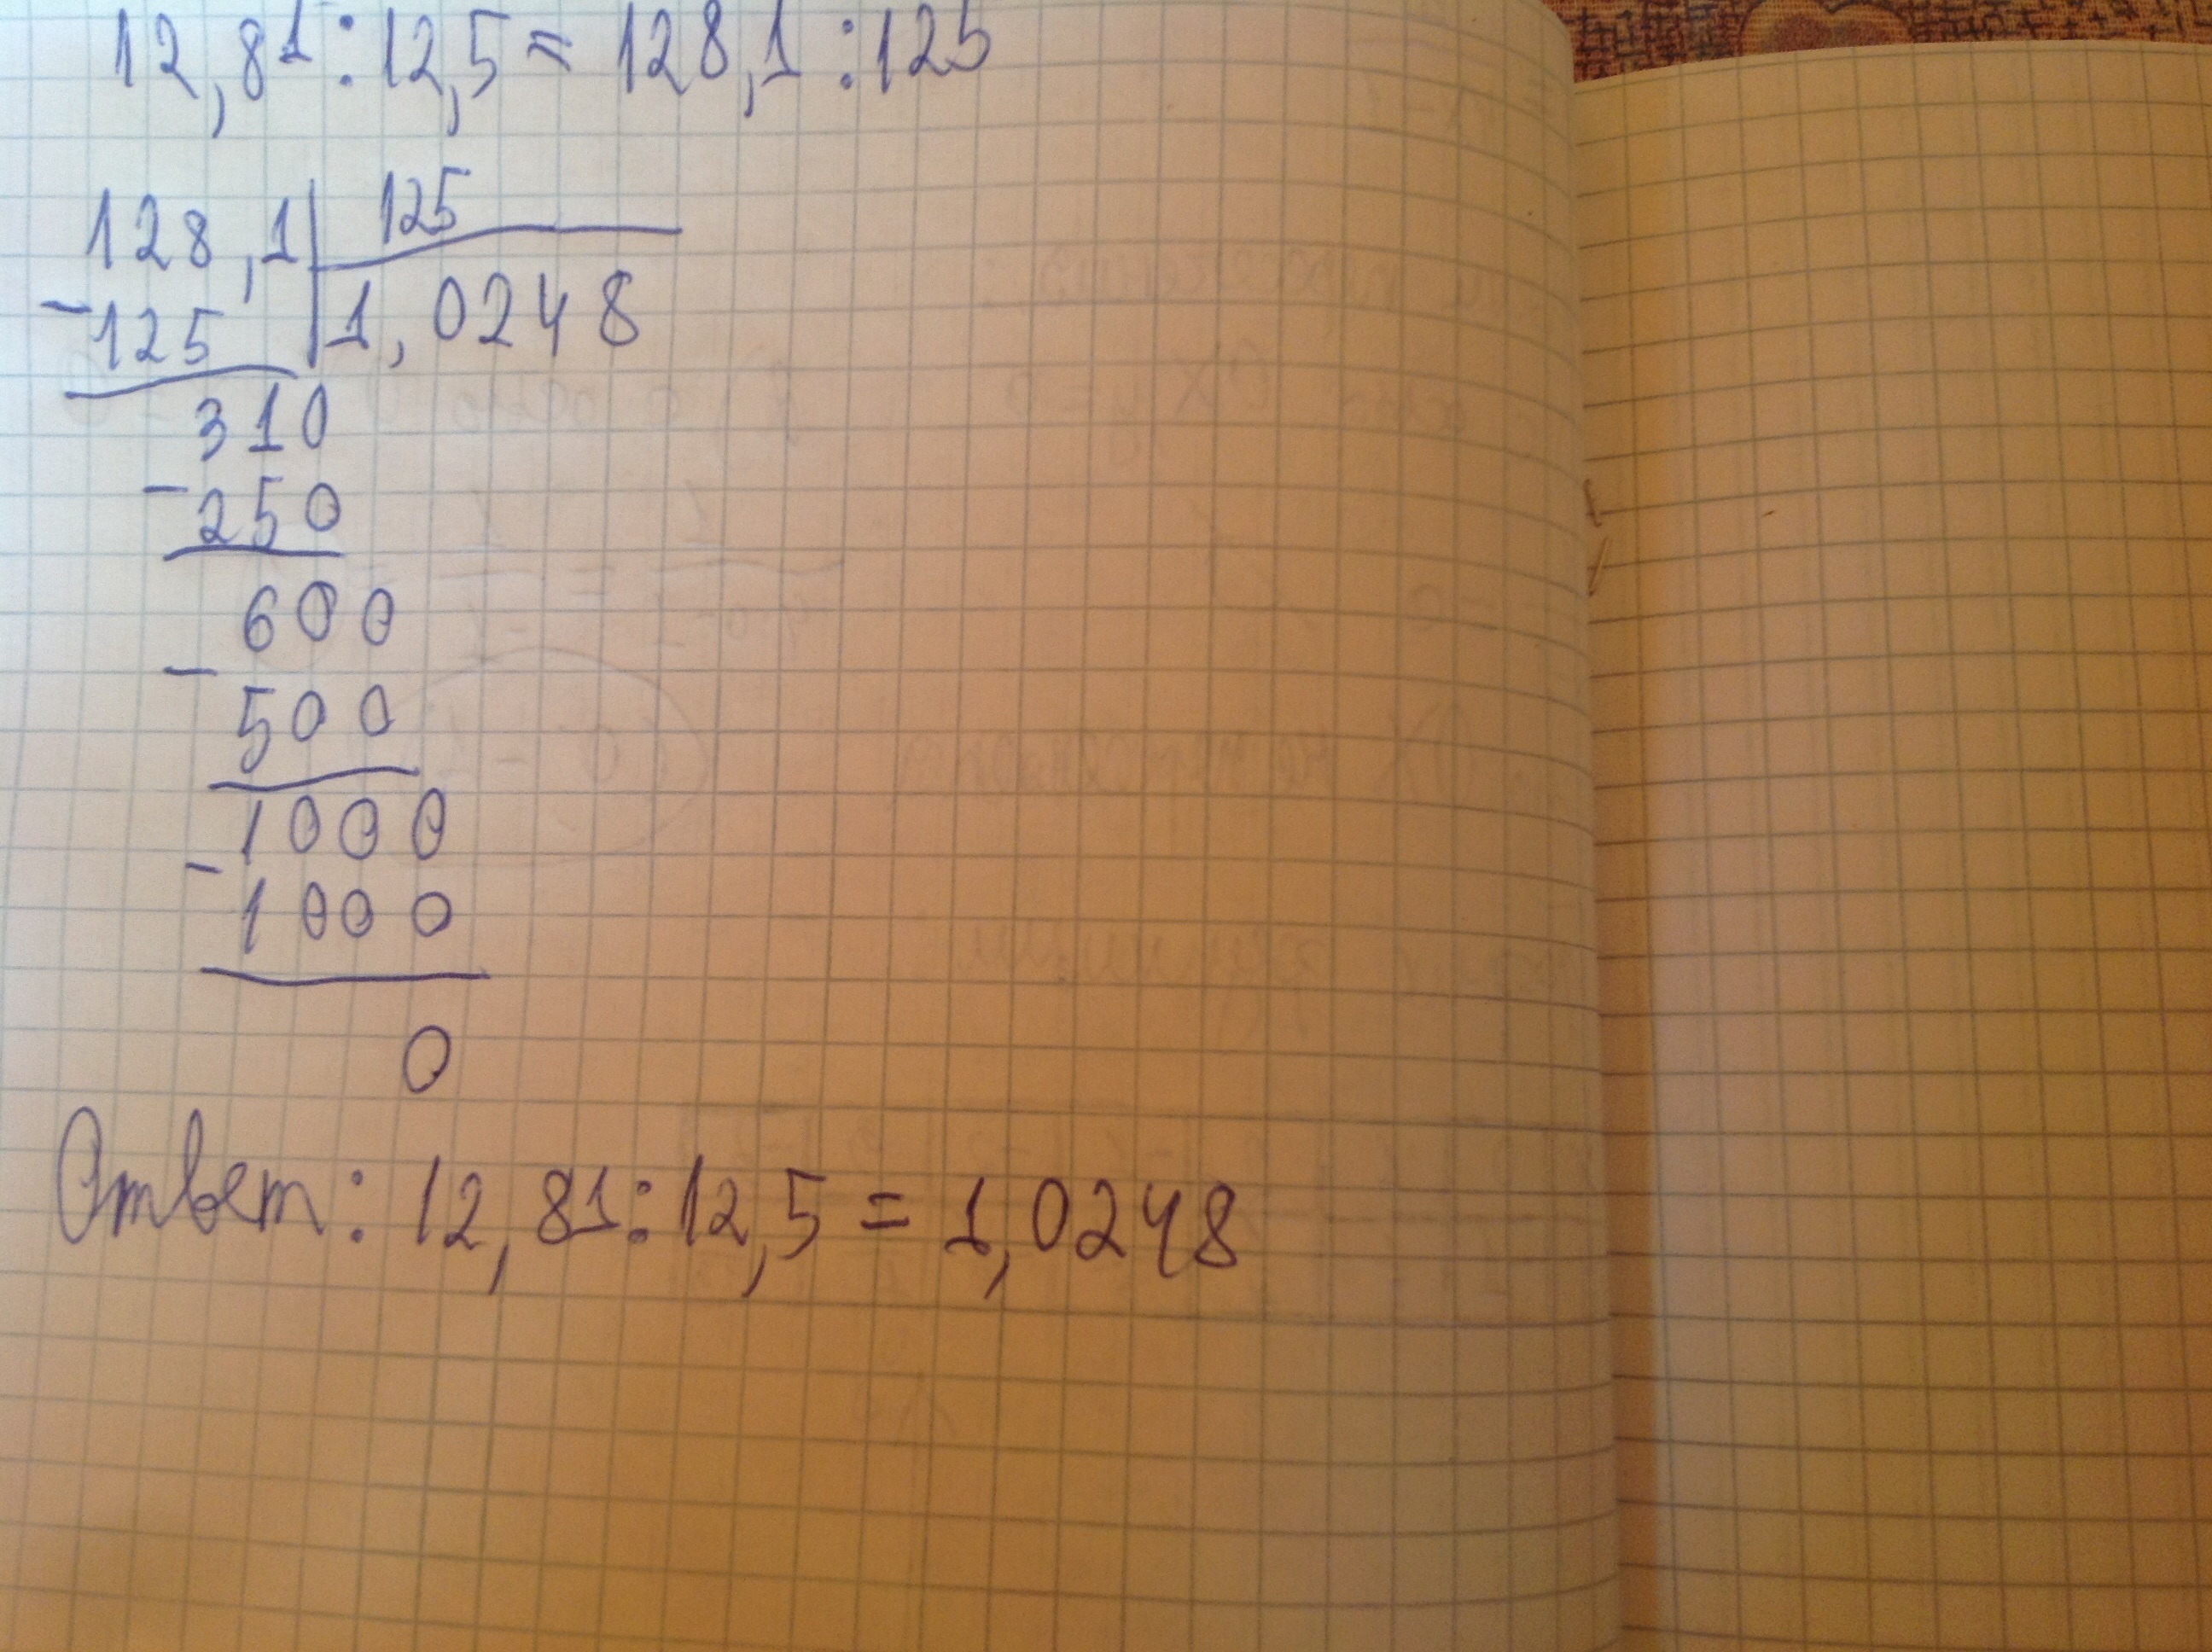 12,81 : 12,5 = 128,1 : 125
128,1 | 125
- 125 | 1,0248
310
- 250
600
- 500
1000
- 1000
0
Ответ: 12,81 : 12,5 = 1,0248